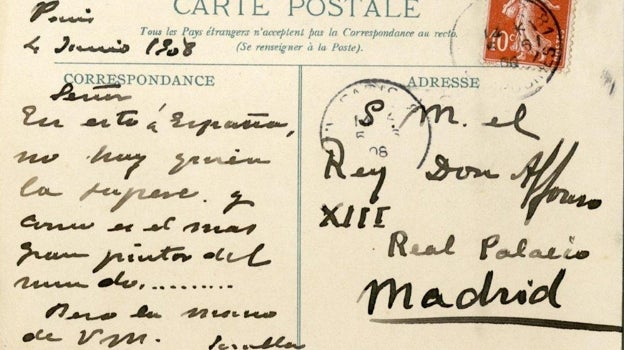 CARTE POSTALE
Tous les Pays étrangers n'acceptent pas la Correspondance au recto.
(Se renseigner à la Poste).
Paris
4 Junio 1908
CORRESPONDANCE
Señor
En esto á España,
no hay quien
la supere y
como es el mas
gran pintor del
mundo.........
Beso la mano
de V.M.
Sorolla
ADRESSE
S. M. el
Rey Don Alfonso
XIII
Real Palacio
Madrid
10